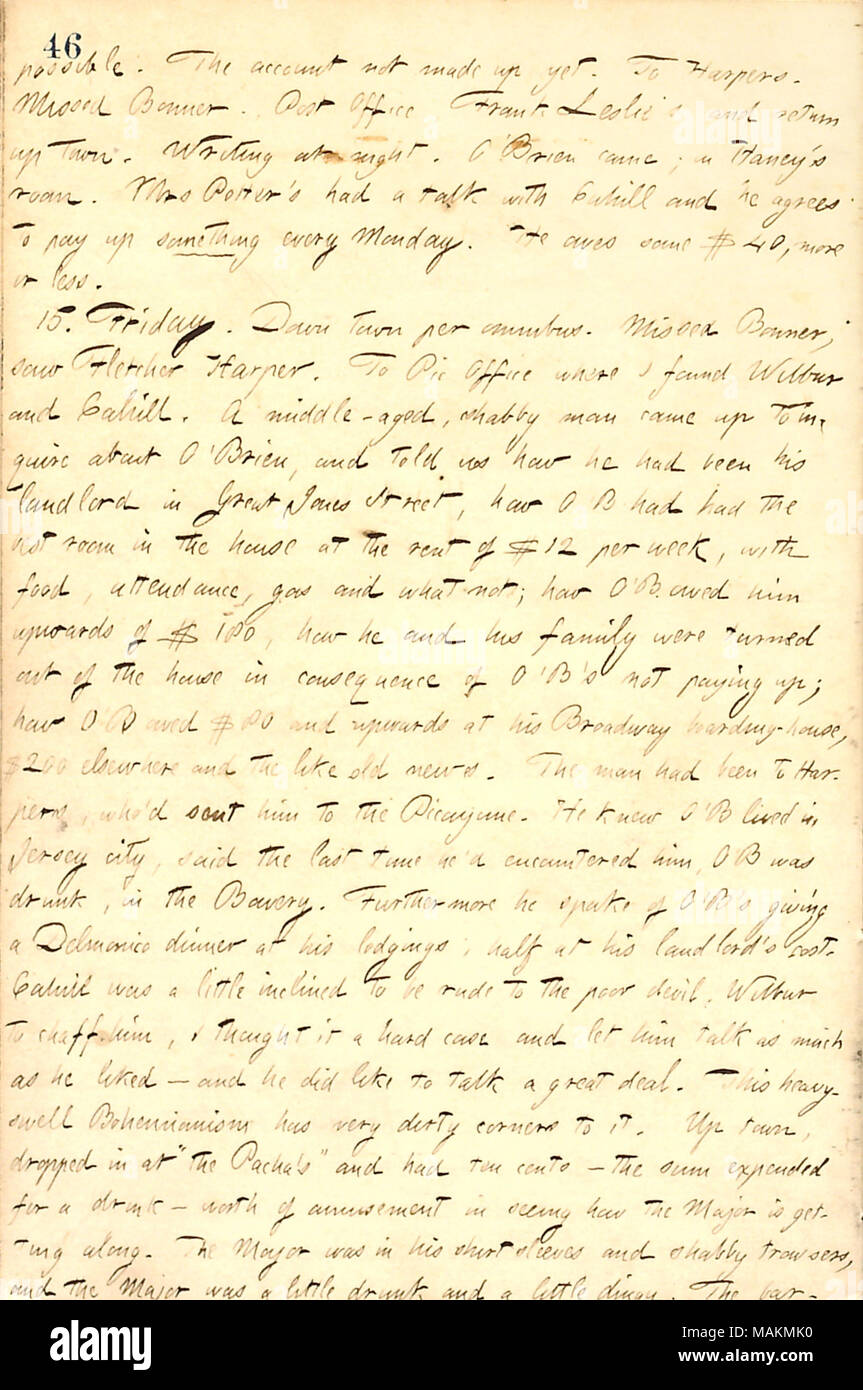 46
possible. The account not made up yet. To Harpers.
Missed Bonner. Post Office Frank Leslie's and return
up town. Writing at night. O'Brien came; in Haney's
room. Mrs Potter's had a talk with Cahill and he agrees
to pay up something every Monday. He owes some $40, more
or less.
15. Friday. Down town per omnibus. Missed Bonner;
saw Fletcher Harper. To Pic Office where I found Wilbur
and Cahill. A middle-aged, shabby man came up to in-
quire about O'Brien, and told us how he had been his
landlord in Great Jones Street, how O'B had had the
best room in the house at the rent of $12 per week, with
food, attendance, gas and what not; how O'B owed him
upwards of $180, how he and his family were turned
out of the house in consequence of O'B's not paying up;
how O'B owed $80 and upwards at his Broadway boarding-house,
$200 elsewhere and the like old news. The man had been to Har-
pers, who'd sent him to the Picayune. He knew O'B lived in
Jersey city, said the last time he'd encountered him, OB was
drunk, in the Bowery. Furthermore he spoke of O'B's giving
a Delmonico dinner at his lodgings, half at his landlord's cost.
Cahill was a little inclined to be rude to the poor devil, Wilbur
to chaff him, I thought it a hard case and let him talk as much
as he liked — and he did like to talk a great deal. This heavy-
swell Bohemianism has very dirty corners to it. Up town,
dropped in at "the Pacha's" and had ten cents — the sum expended
for a drink — worth of amusement in seeing how the Major is get-
ting along. The Major was in his shirt sleeves and shabby trowsers,
and the Major was a little drunk and a little dingy. The bar-
alamy
Image ID: MAKMK0
www.alamy.com